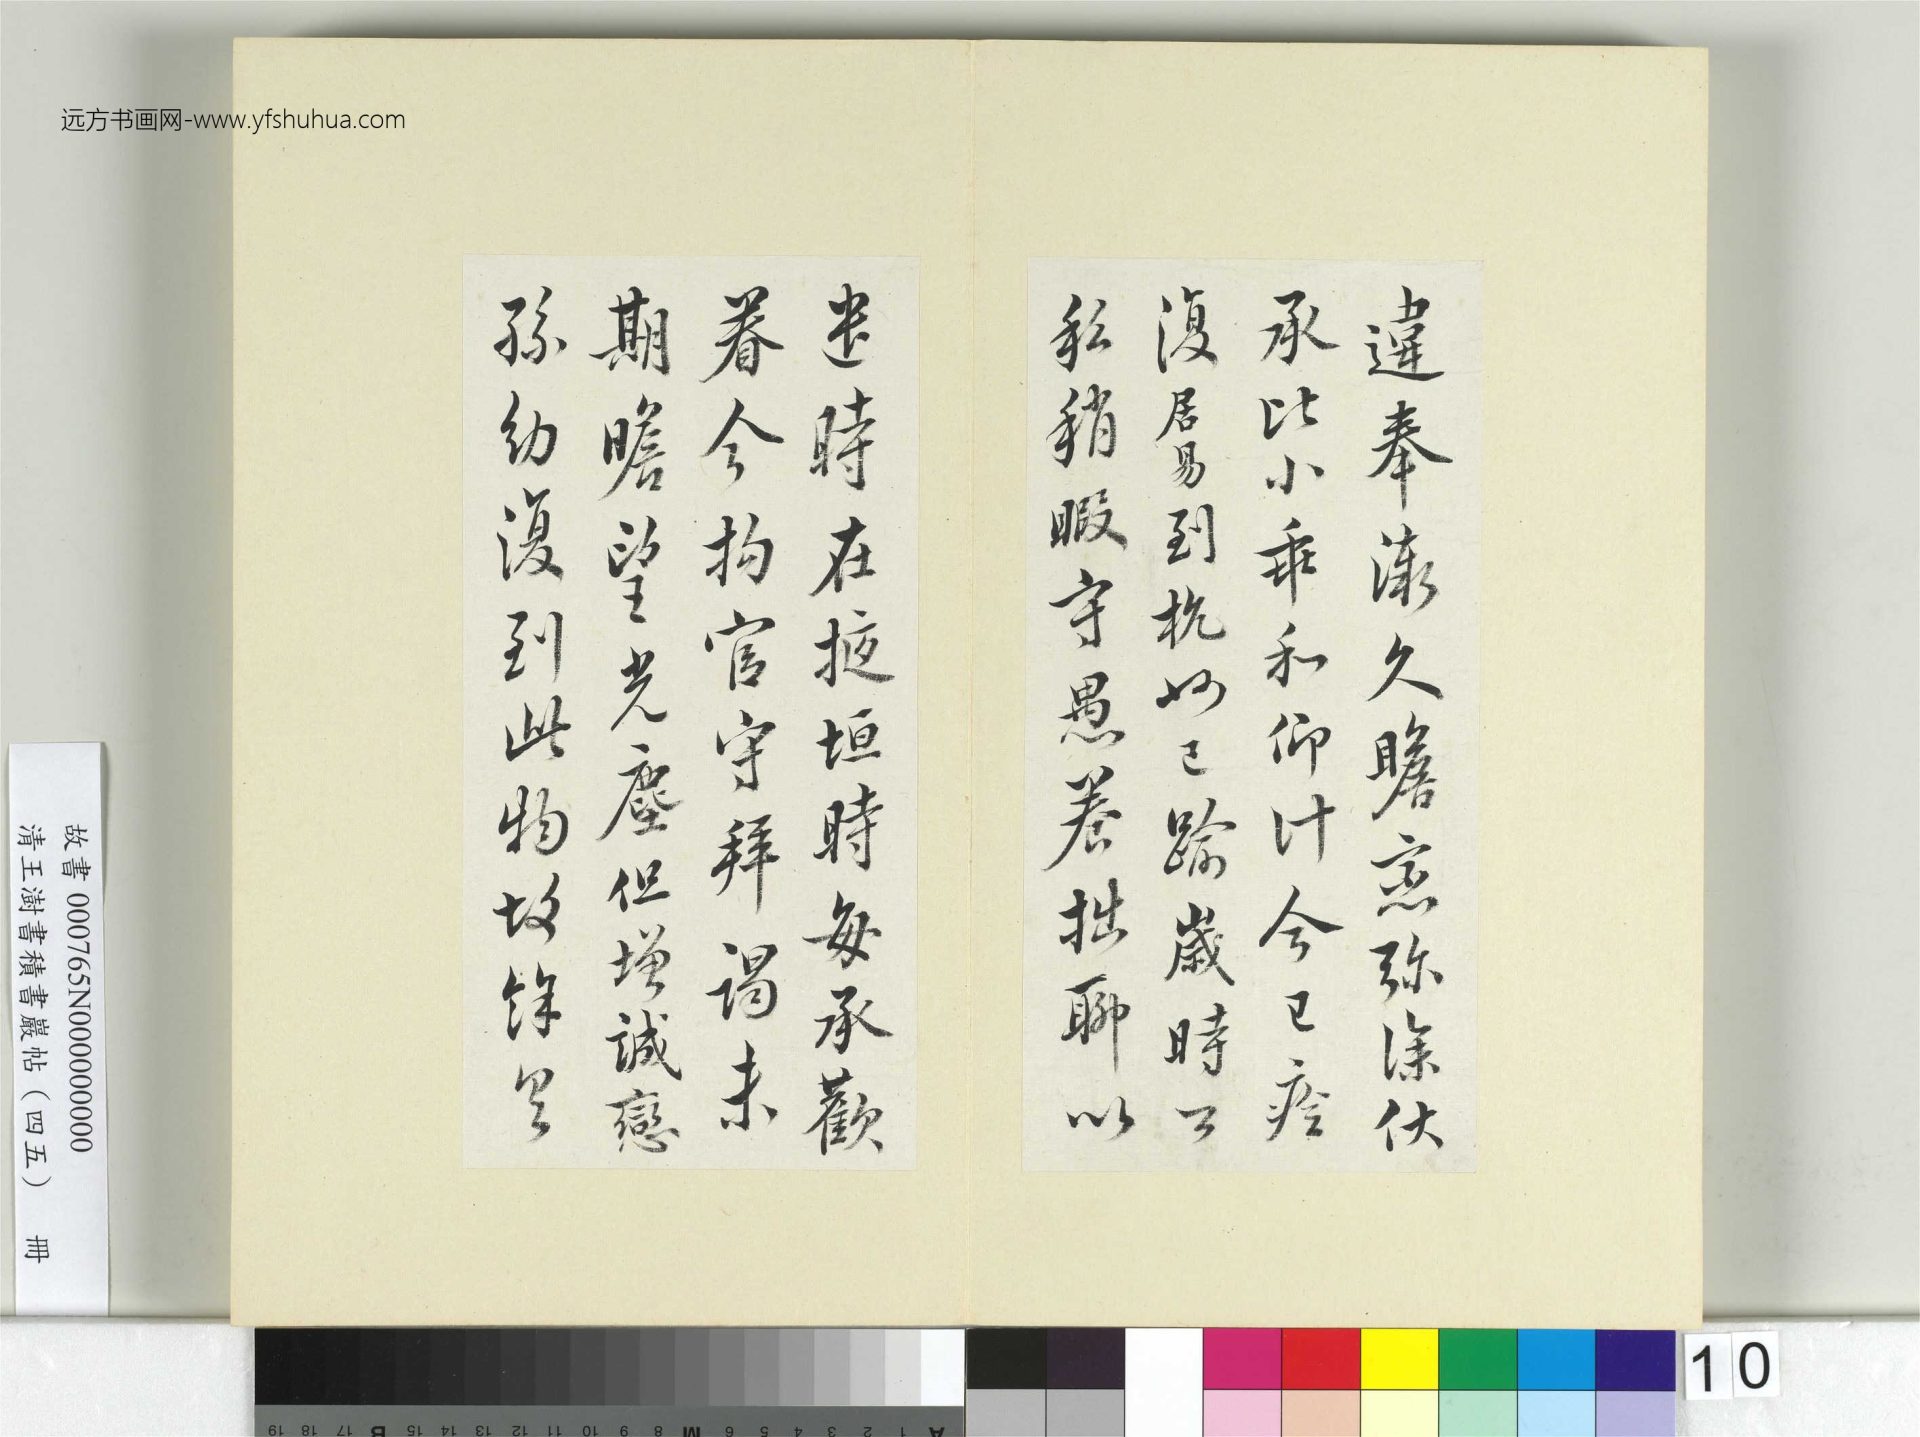 違奉漸久瞻戀弥深伏
承比小乖和仰計今已痊
復居易到杭州已踰歲時公
私稍暇守愚養拙聊以
遣時在掖垣時每承歡
眷今拘官守拜謁未
期瞻望光塵但增誠戀
孫幼復到此物故餘具
远方书画网-www.yfshuhua.com
故書 000765N000000000
清王澍書積書巖帖（四五） 冊
10
A 1 2 3 4 5 6 M 8 9 10 11 12 13 14 15 B 17 18 19